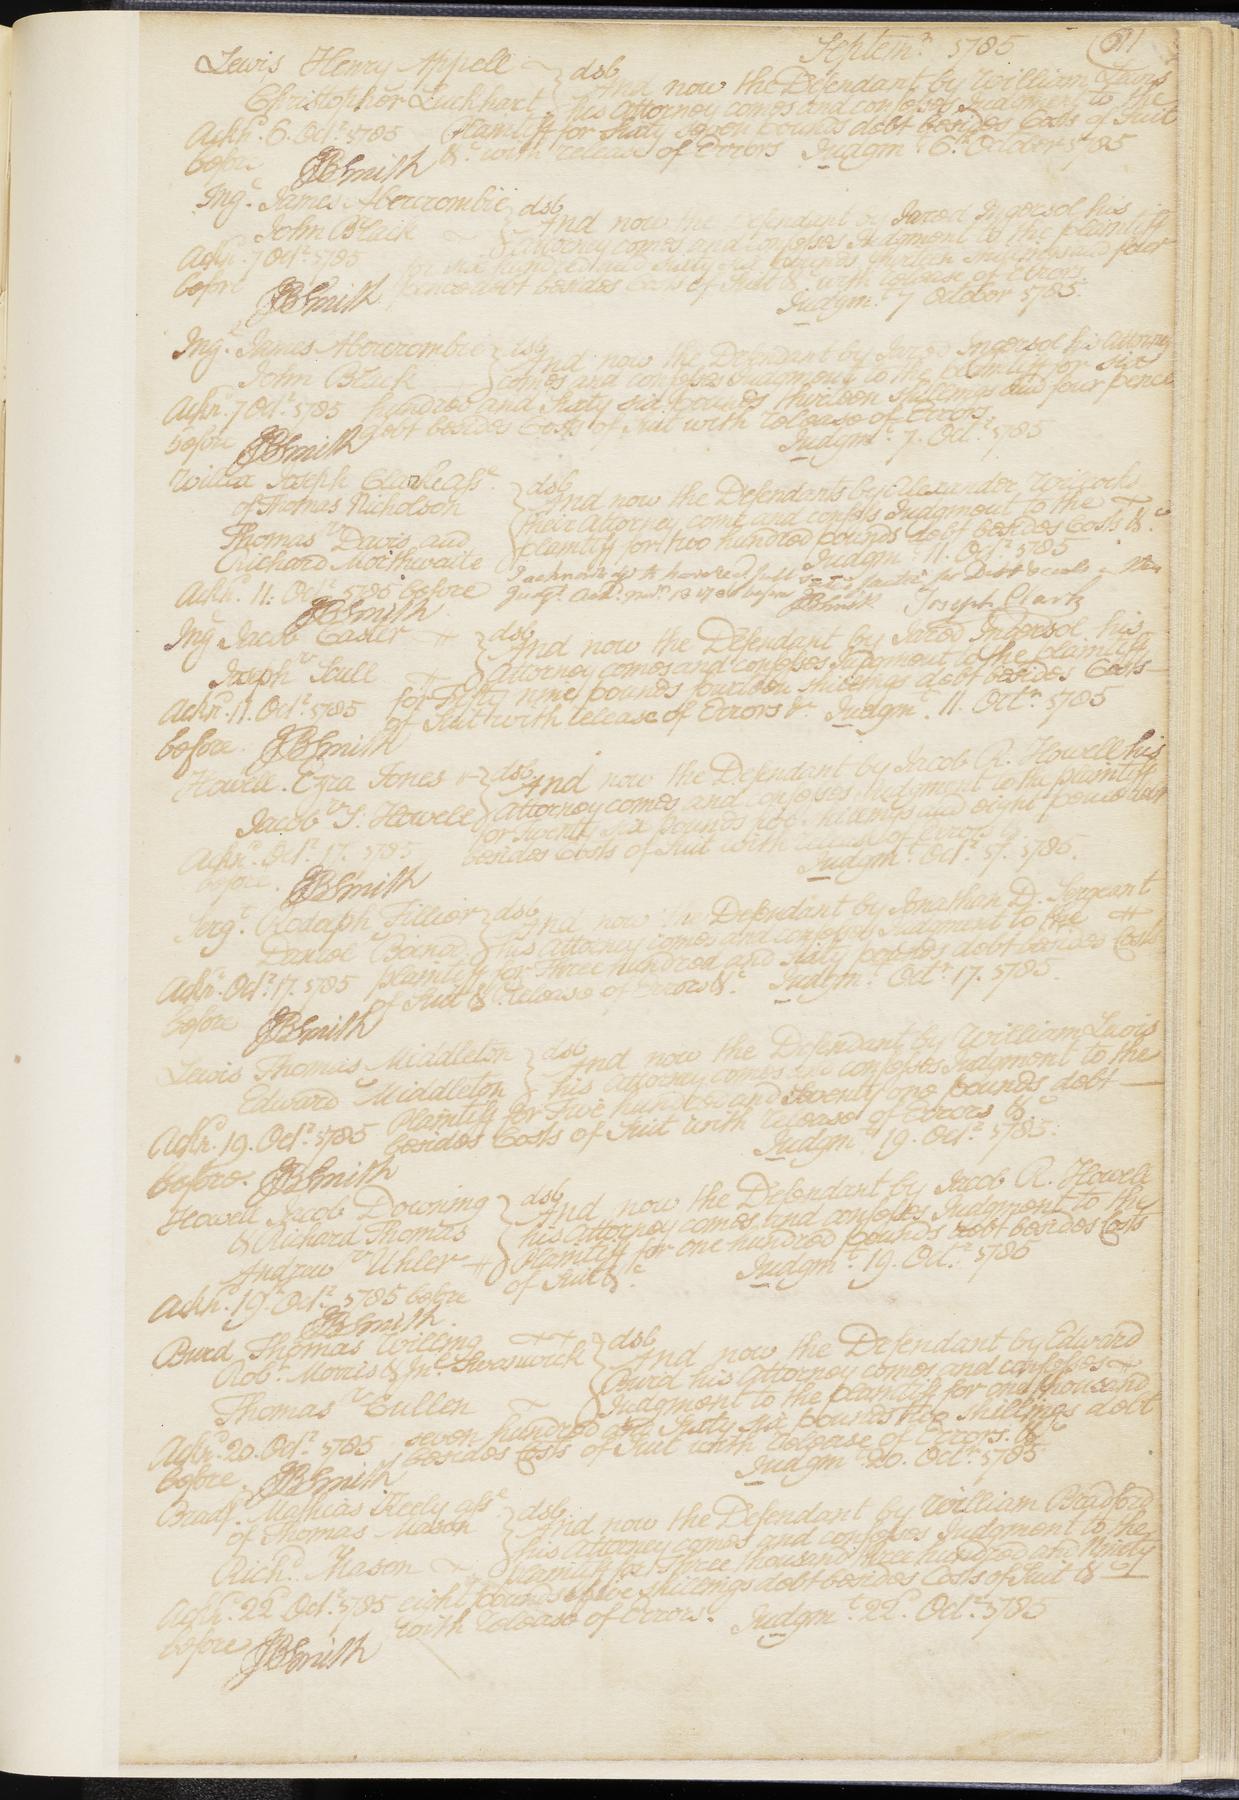 Septemr. 1785 611
Lewis Henry Appell } dsb
Christopher Luckhart } And now the Defendant by William Lewis
his Attorney comes and confesses Judgment to the
Ackn. 6. Octr. 1785 Plaintiff for Sixty seven pounds debt besides Costs of Suit
before JBSmith &c. with release of Errors Judgmt. 6th. October 1785
Ing. James Abercrombie } dsb
John Black } And now the Defendant by Jared Ingersol his
Attorney comes and confesses Judgment to the plaintiff
Ackn. 7 Octr. 1785 for six hundred and sixty six pounds thirteen shillings and four
before JBSmith pence debt besides Costs of Suit &c. with release of Errors.
Judgmt. 7 October 1785.
Ing. James Abercrombie } dsb
John Black } And now the Defendant by Jared Ingersol his Attorney
comes and confesses Judgment to the plaintiff for six
Ackn. 7 Octr. 1785 hundred and Sixty six pounds thirteen shillings and four pence
before JBSmith debt besides Costs of Suit with release of Errors.
Judgmt. 7. Octr. 1785
Joseph Clark asse. } dsb
of Thomas Nicholson And now the Defendants by Alexander Wilcocks
their Attorney come and confess Judgment to the
Thomas v Davis and plaintiff for two hundred pounds debt besides Costs &c.
Richard Moithwaite Judgmt. 11. Octr. 1785
Ackn. 11. Octr. 1785 before I acknowledge to have recd. full satisfaction for Debt &
JBSmith Judgt. before JBSmith Joseph Clark
Ing. Jacob Easler } dsb
And now the Defendant by Jared Ingersol his
Joseph v Scull Attorney comes and confesses Judgment to the plaintiff
for Fifty nine pounds fourteen shillings debt besides Costs
Ackn. 11. Octr. 1785 of Suit with release of Errors &c. Judgmt. 11. Octr. 1785
before. JBSmith
Howell. Ezra Jones } dsb
And now the Defendant by Jacob R. Howell his
Attorney comes and confesses Judgment to the plaintiff
Jacob v S. Howell for Twenty six pounds five shillings and eight pence
Ackn. Octr. 17. 1785 besides Costs of Suit with release of Errors &c.
before. JBSmith Judgmt. Octr. 17. 1785.
Serg. Rodolph Tillier } dsb
And now the Defendant by Jonathan D. Sergeant
his Attorney comes and confesses Judgment to the
Ackn. Octr. 17. 1785 plaintiff for Three hundred and Sixty pounds debt besides Costs
of Suit & release of Errors &c. Judgmt. Octr. 17. 1785.
before JBSmith
Lewis Thomas Middleton } dsb
And now the Defendant by William Lewis
Edward Middleton } his Attorney comes and confesses Judgment to the
Plaintiff for Five hundred and Seventy one pounds debt
Ackn. 19. Octr. 1785 besides Costs of Suit with release of Errors &c.
Judgmt. 19. Octr. 1785.
before. JBSmith
Howell Jacob Downing } dsb
& Richard Thomas And now the Defendant by Jacob R. Howell
his Attorney comes and confesses Judgment to the
Andrew v Uhler Plaintiff for one hundred pounds debt besides Costs
of Suit &c. Judgmt. 19. Octr. 1785
Ackn. 19. Octr. 1785 before
JBSmith.
Burd Thomas Willing } dsb
Robt. Morris & Jno. Swanwick And now the Defendant by Edward
Burd his Attorney comes and confesses
Thomas v Cullen Judgment to the plaintiff for one thousand
seven hundred and Sixty six pounds two shillings debt
Ackn. 20. Octr. 1785 besides Costs of Suit with release of Errors. &c.
before. JBSmith Judgmt. 20. Octr. 1785
Bradf. Mathias Keely asse. } dsb
of Thomas Mason And now the Defendant by William Bradford
his Attorney comes and confesses Judgment to the
Richd. Mason plaintiff for Three thousand three hundred and Ninety
Ackn. 22d. Octr. 1785 eight pounds five shillings debt besides Costs of Suit &c.
with release of Errors. Judgmt. 22d. Octr. 1785
before JBSmith